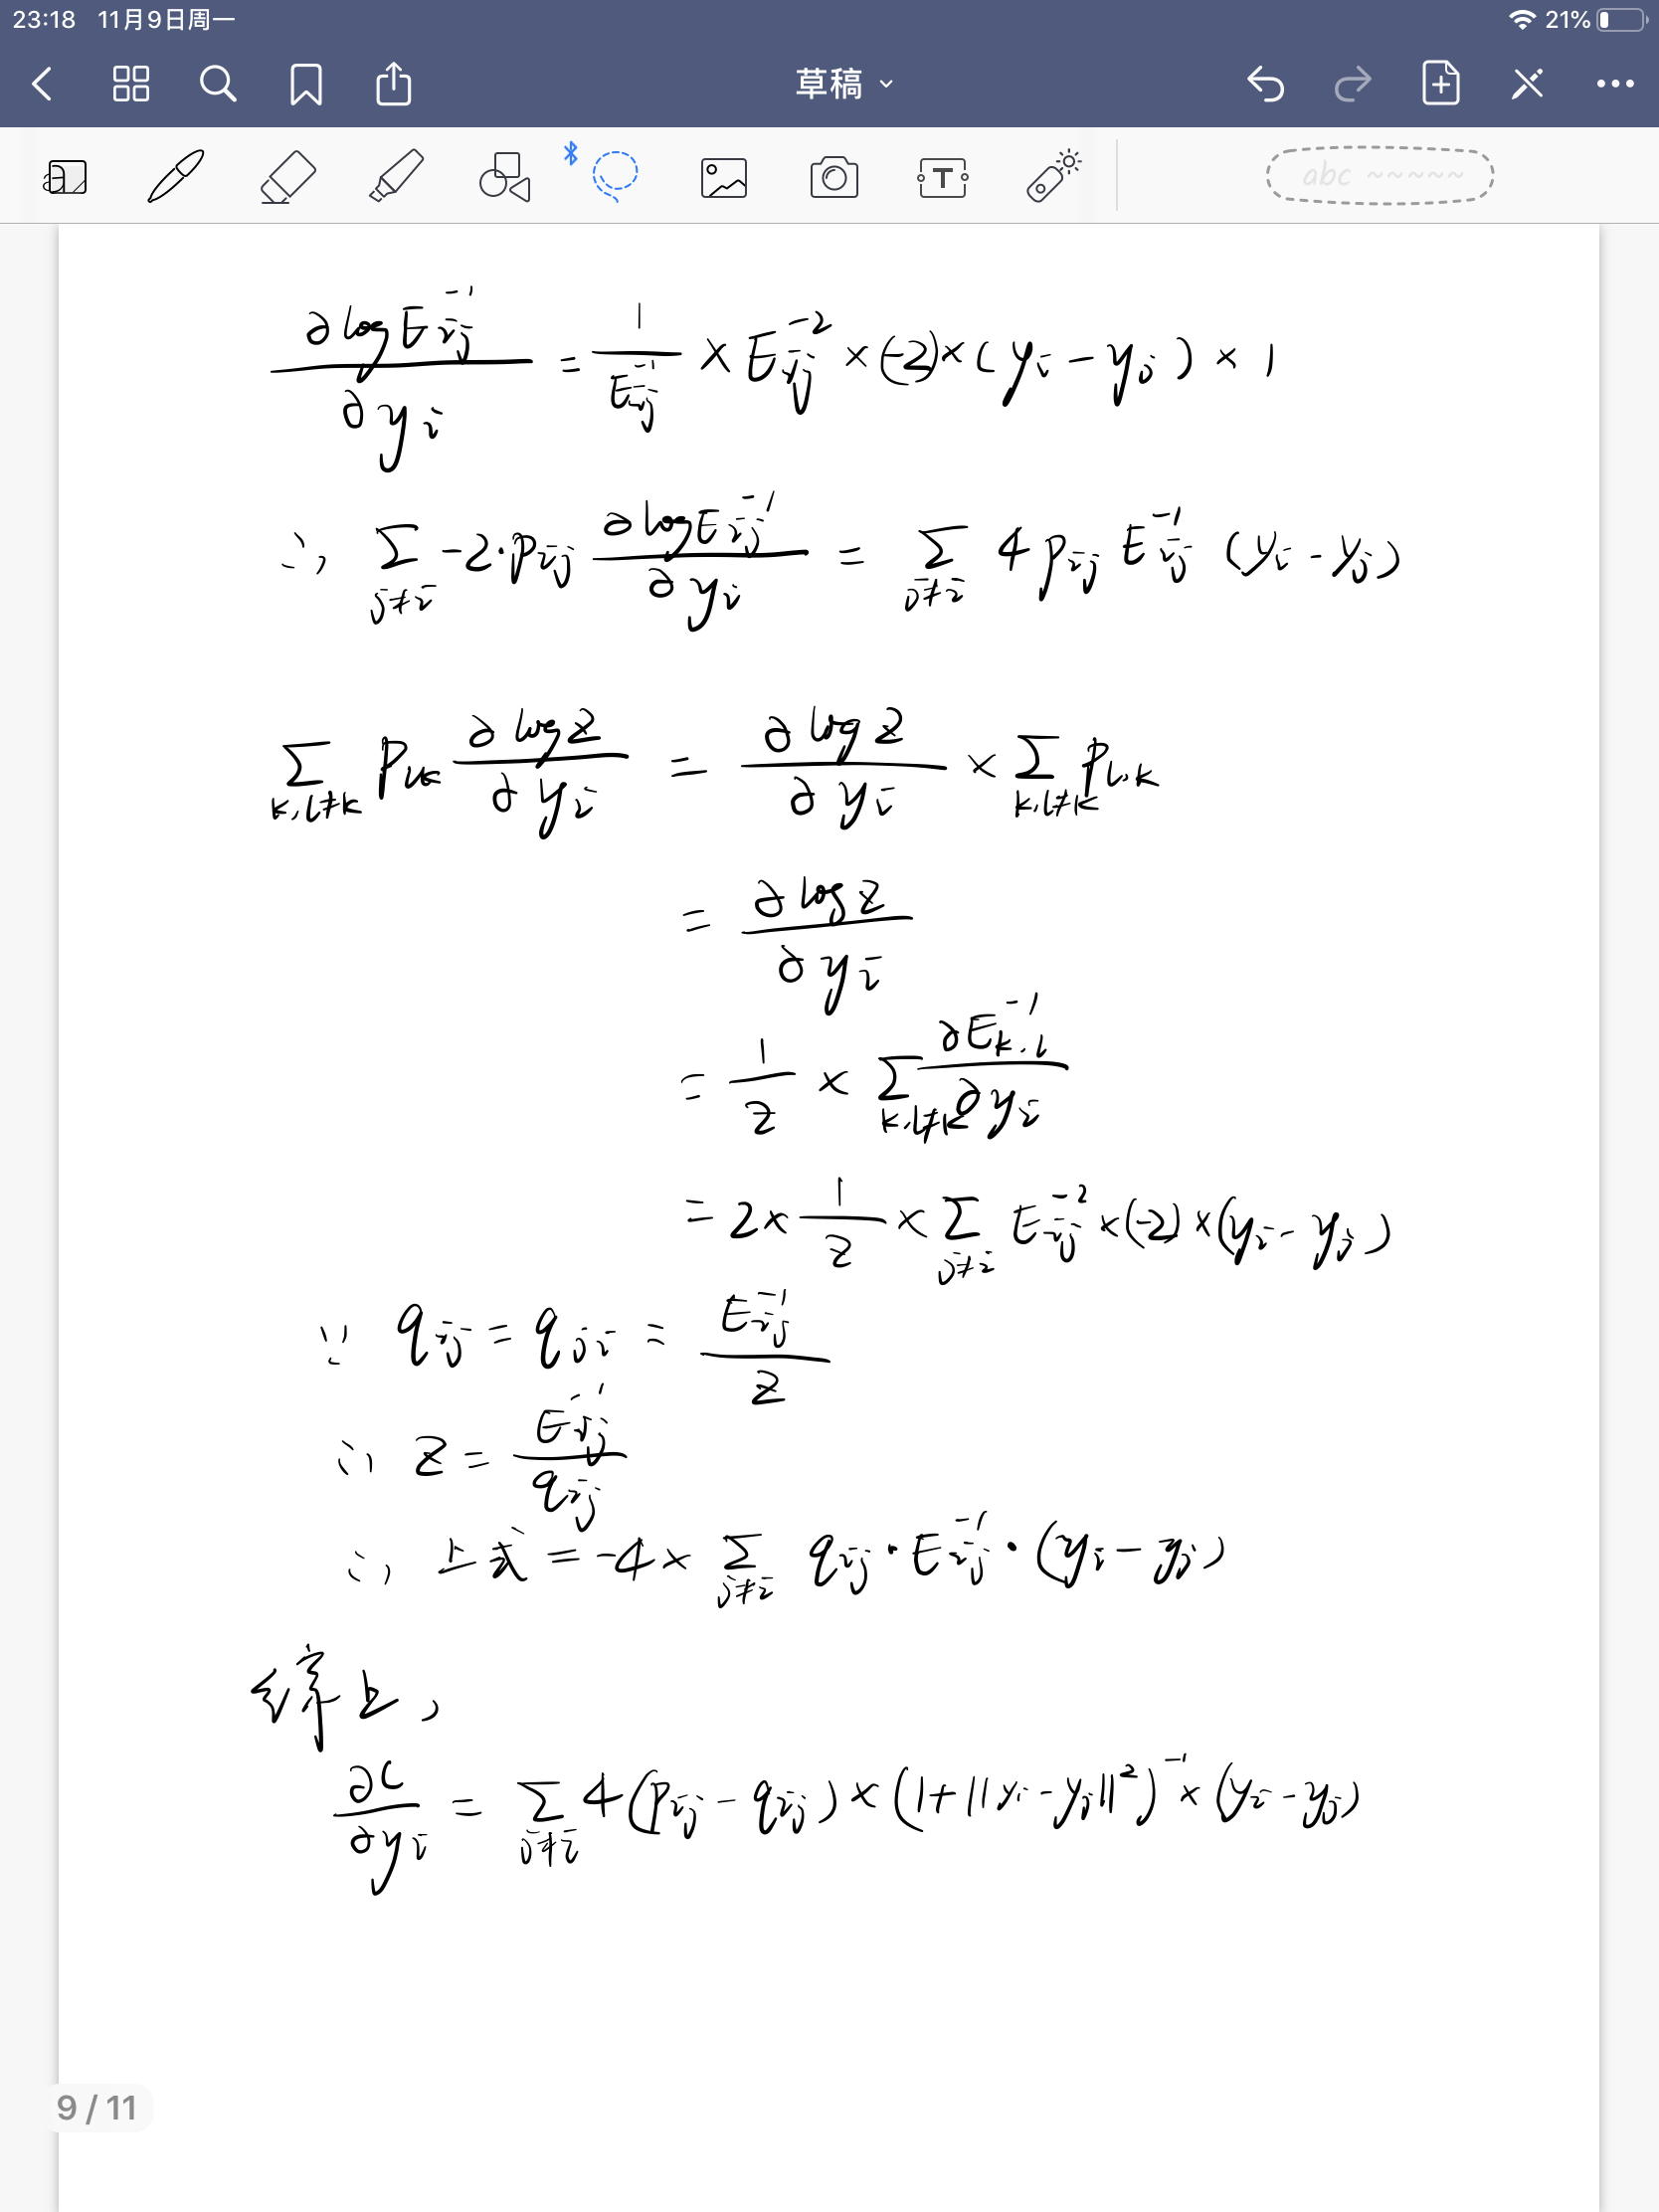 23:18 11月9日周一 21%
草稿
abc ~~~~~
∂logE_{ij}^{-1}/∂y_i = 1/E_{ij}^{-1} × E_{ij}^{-2} × (-2) × (y_i - y_j) × 1
∴ Σ_{j≠i} -2·p_{ij} ∂logE_{ij}^{-1}/∂y_i = Σ_{j≠i} 4 p_{ij} E_{ij}^{-1} (y_i - y_j)
Σ_{k,l≠k} p_{lk} ∂logZ/∂y_i = ∂logZ/∂y_i × Σ_{k,l≠k} p_{l,k}
= ∂logZ/∂y_i
= 1/Z × Σ_{k,l≠k} ∂E_{k,l}^{-1}/∂y_i
= 2 × 1/Z × Σ_{j≠i} E_{ij}^{-2} × (-2) × (y_i - y_j)
∵ q_{ij} = q_{ji} = E_{ij}^{-1}/Z
∴ Z = E_{ij}^{-1}/q_{ij}
∴ 上式 = -4 × Σ_{j≠i} q_{ij} · E_{ij}^{-1} · (y_i - y_j)
综上,
∂C/∂y_i = Σ_{j≠i} 4(p_{ij} - q_{ij}) × (1+||y_i - y_j||^2)^{-1} × (y_i - y_j)
9 / 11